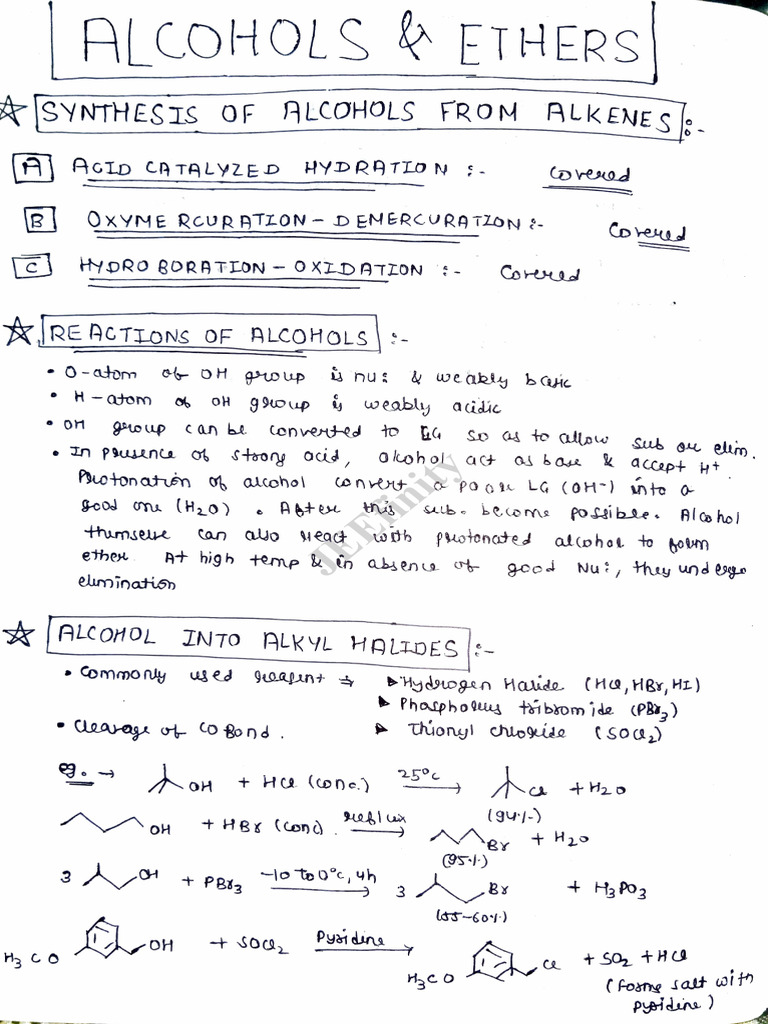 ALCOHOLS & ETHERS
☆ SYNTHESIS OF ALCOHOLS FROM ALKENES :-
A ACID CATALYZED HYDRATION :- Covered
B OXYMERCURATION - DEMERCURATION :- Covered
C HYDROBORATION - OXIDATION :- Covered
☆ REACTIONS OF ALCOHOLS :-
• O-atom of OH group is nu: & weakly basic
• H-atom of OH group is weakly acidic
• OH group can be converted to LG so as to allow sub or elim.
• In presence of strong acid, alcohol act as base & accept H+
Protonation of alcohol convert a poor LG (OH-) into a
good one (H2O). After this sub. become possible. Alcohol
themselve can also react with protonated alcohol to form
ether. At high temp & in absence of good Nu:, they undergo
elimination
JEEfinity
☆ ALCOHOL INTO ALKYL HALIDES :-
• Commonly used reagent ⇒ ▸ Hydrogen Halide (HCl, HBr, HI)
▸ Phosphorus tribromide (PBr3)
• Cleavage of CO Bond. ▸ Thionyl chloride (SOCl2)
eg. → OH + HCl (conc.) 25°C → Cl + H2O
(94%)
OH + HBr (conc) reflux → Br + H2O
(95%)
3 OH + PBr3 -10 to 0°C, 4h → 3 Br + H3PO3
(55-60%)
H3CO OH + SOCl2 Pyridine → H3CO Cl + SO2 + HCl
(forms salt with
pyridine)